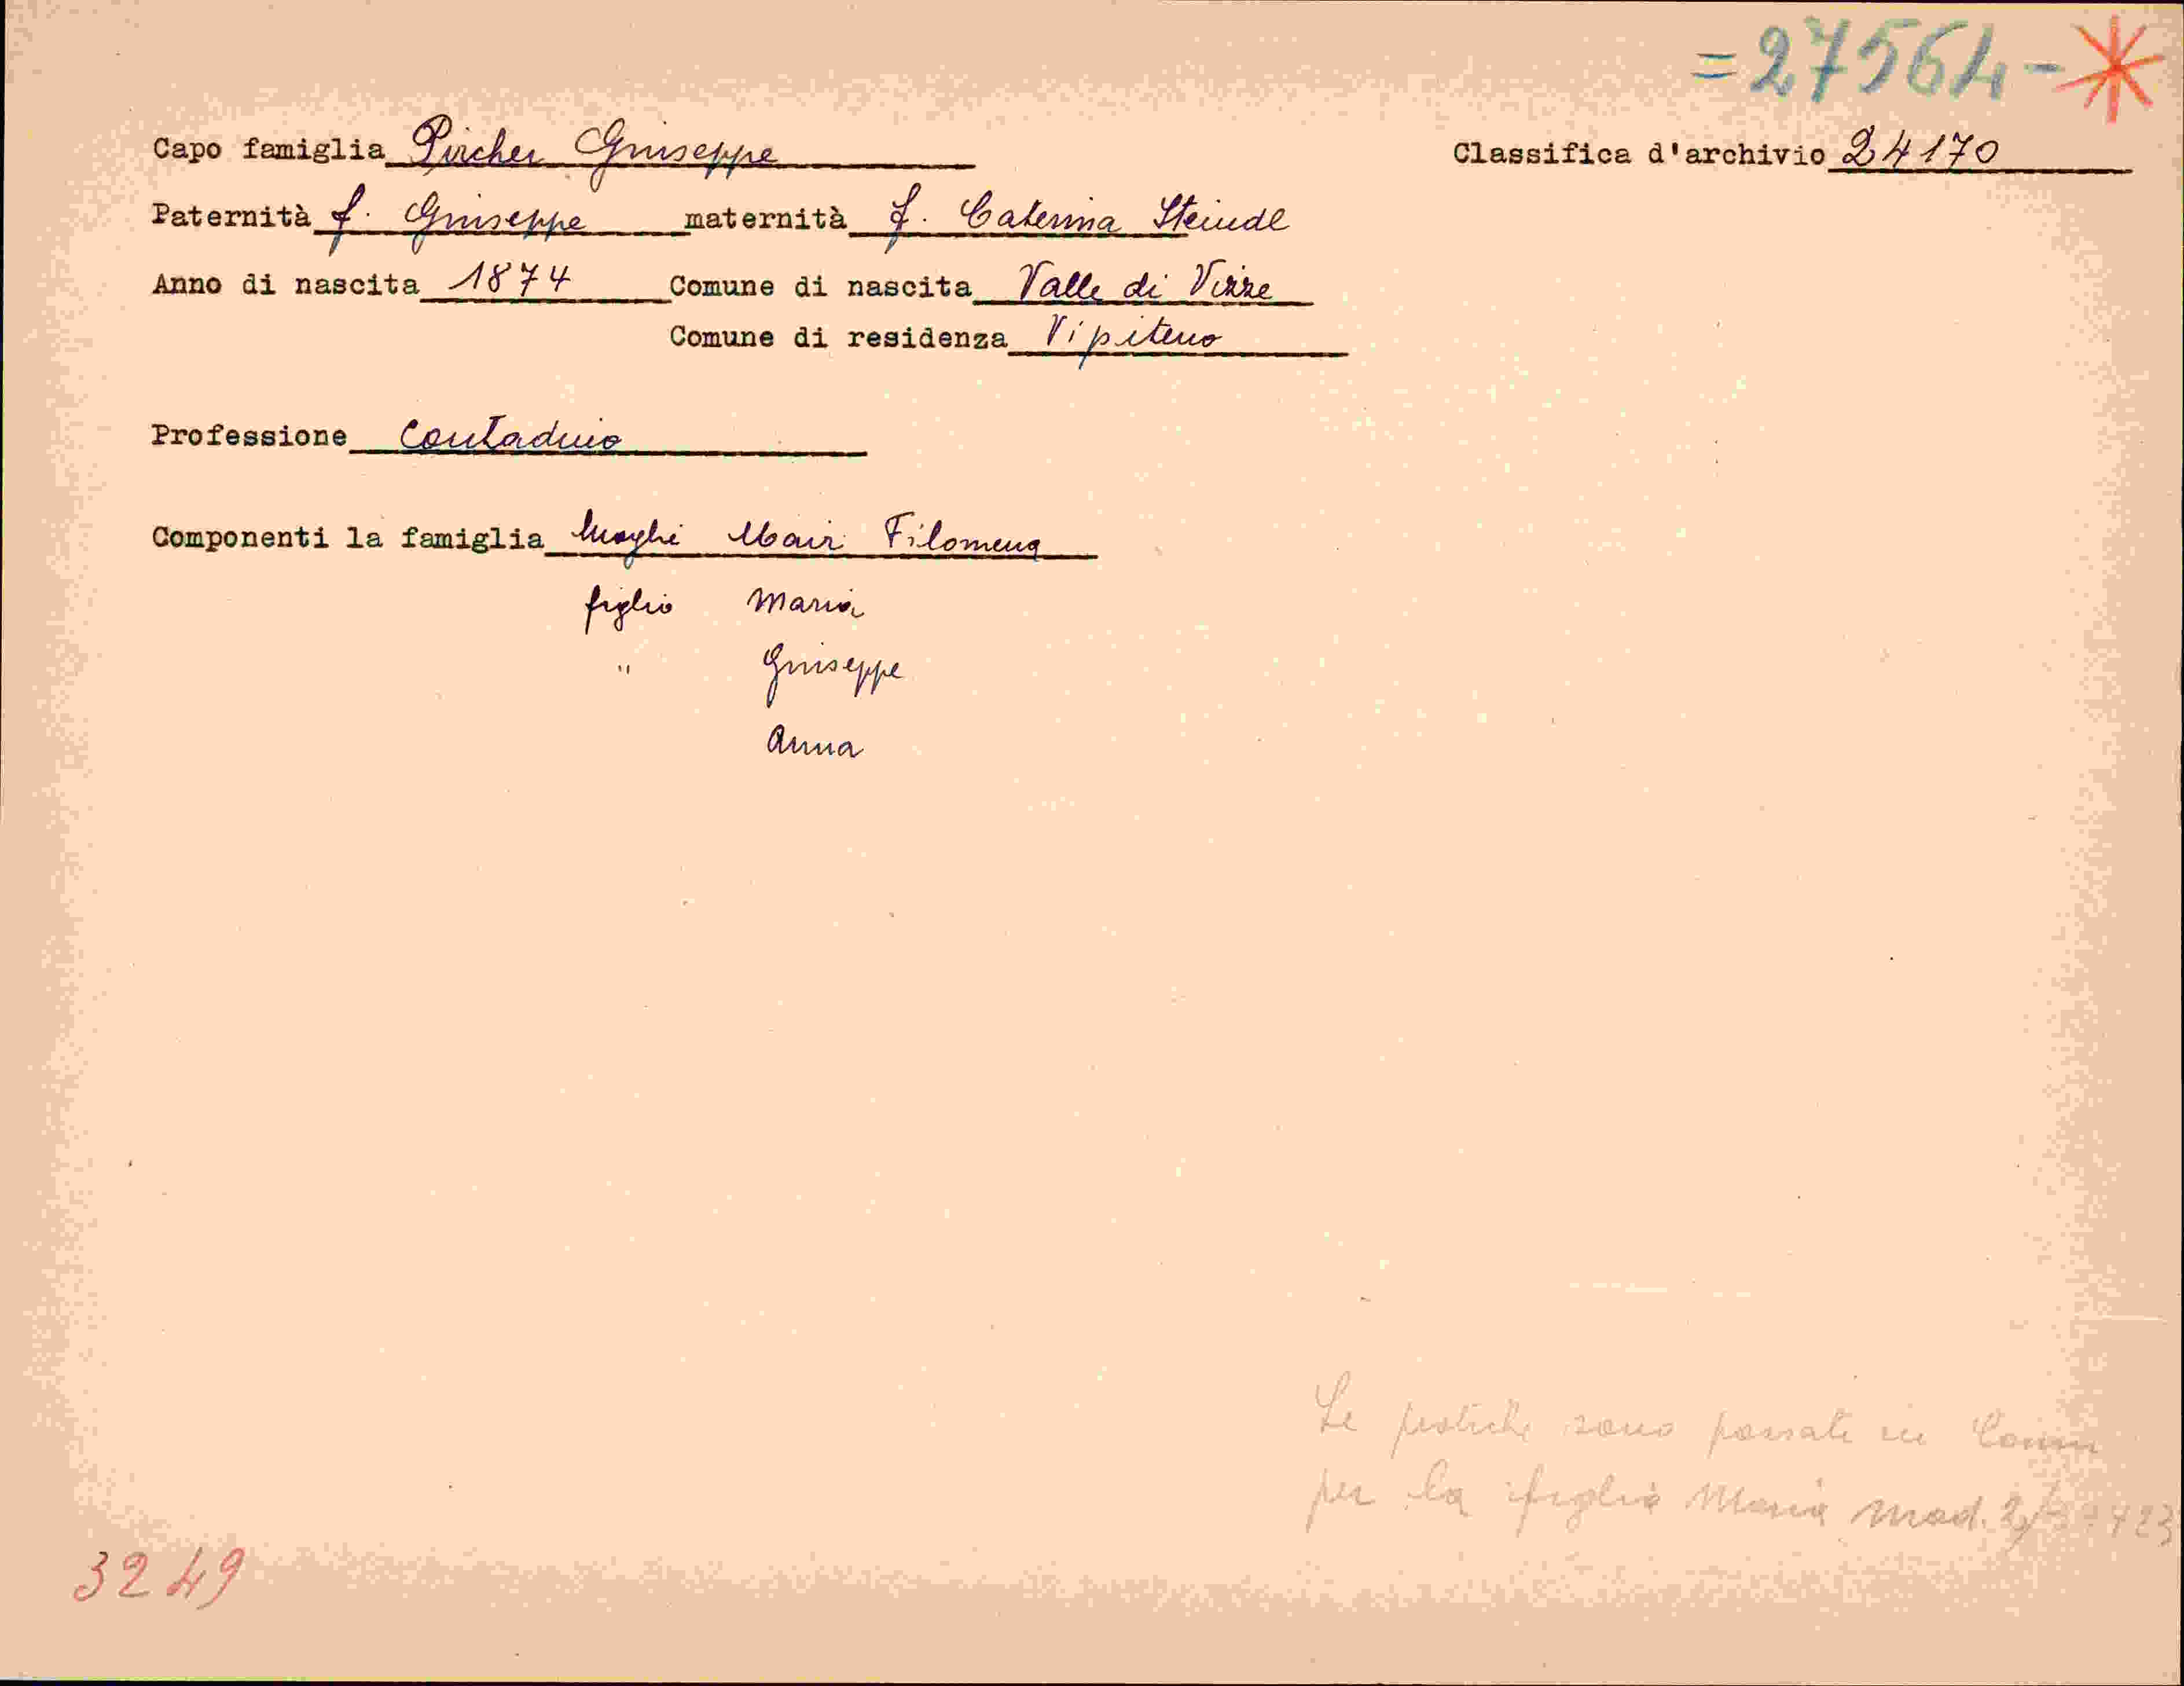 =27564-*
Capo famiglia Pircher Giuseppe Classifica d'archivio 24170
Paternità f. Giuseppe maternità f. Caterina Steindl
Anno di nascita 1874 Comune di nascita Valle di Vizze
Comune di residenza Vipiteno
Professione Contadino
Componenti la famiglia Moglie Mair Filomena
figlio Maria
" Giuseppe
Anna
Le pratiche sono passate in
per la figlia Maria mod.
3249